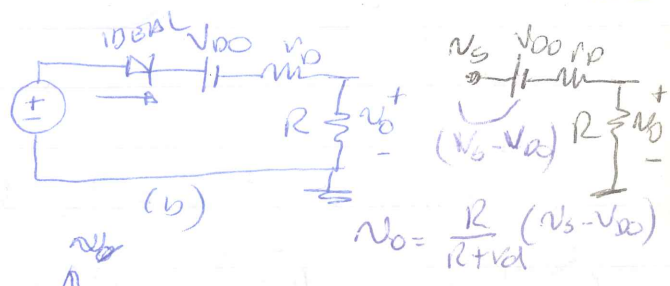 IDEAL V_DO r_D
+
-
R v_O + -
(b)
v_S V_DO r_D
(v_S - V_DO) R v_O + -
v_O = R/(R+r_d) (v_S - V_DO)
v_O